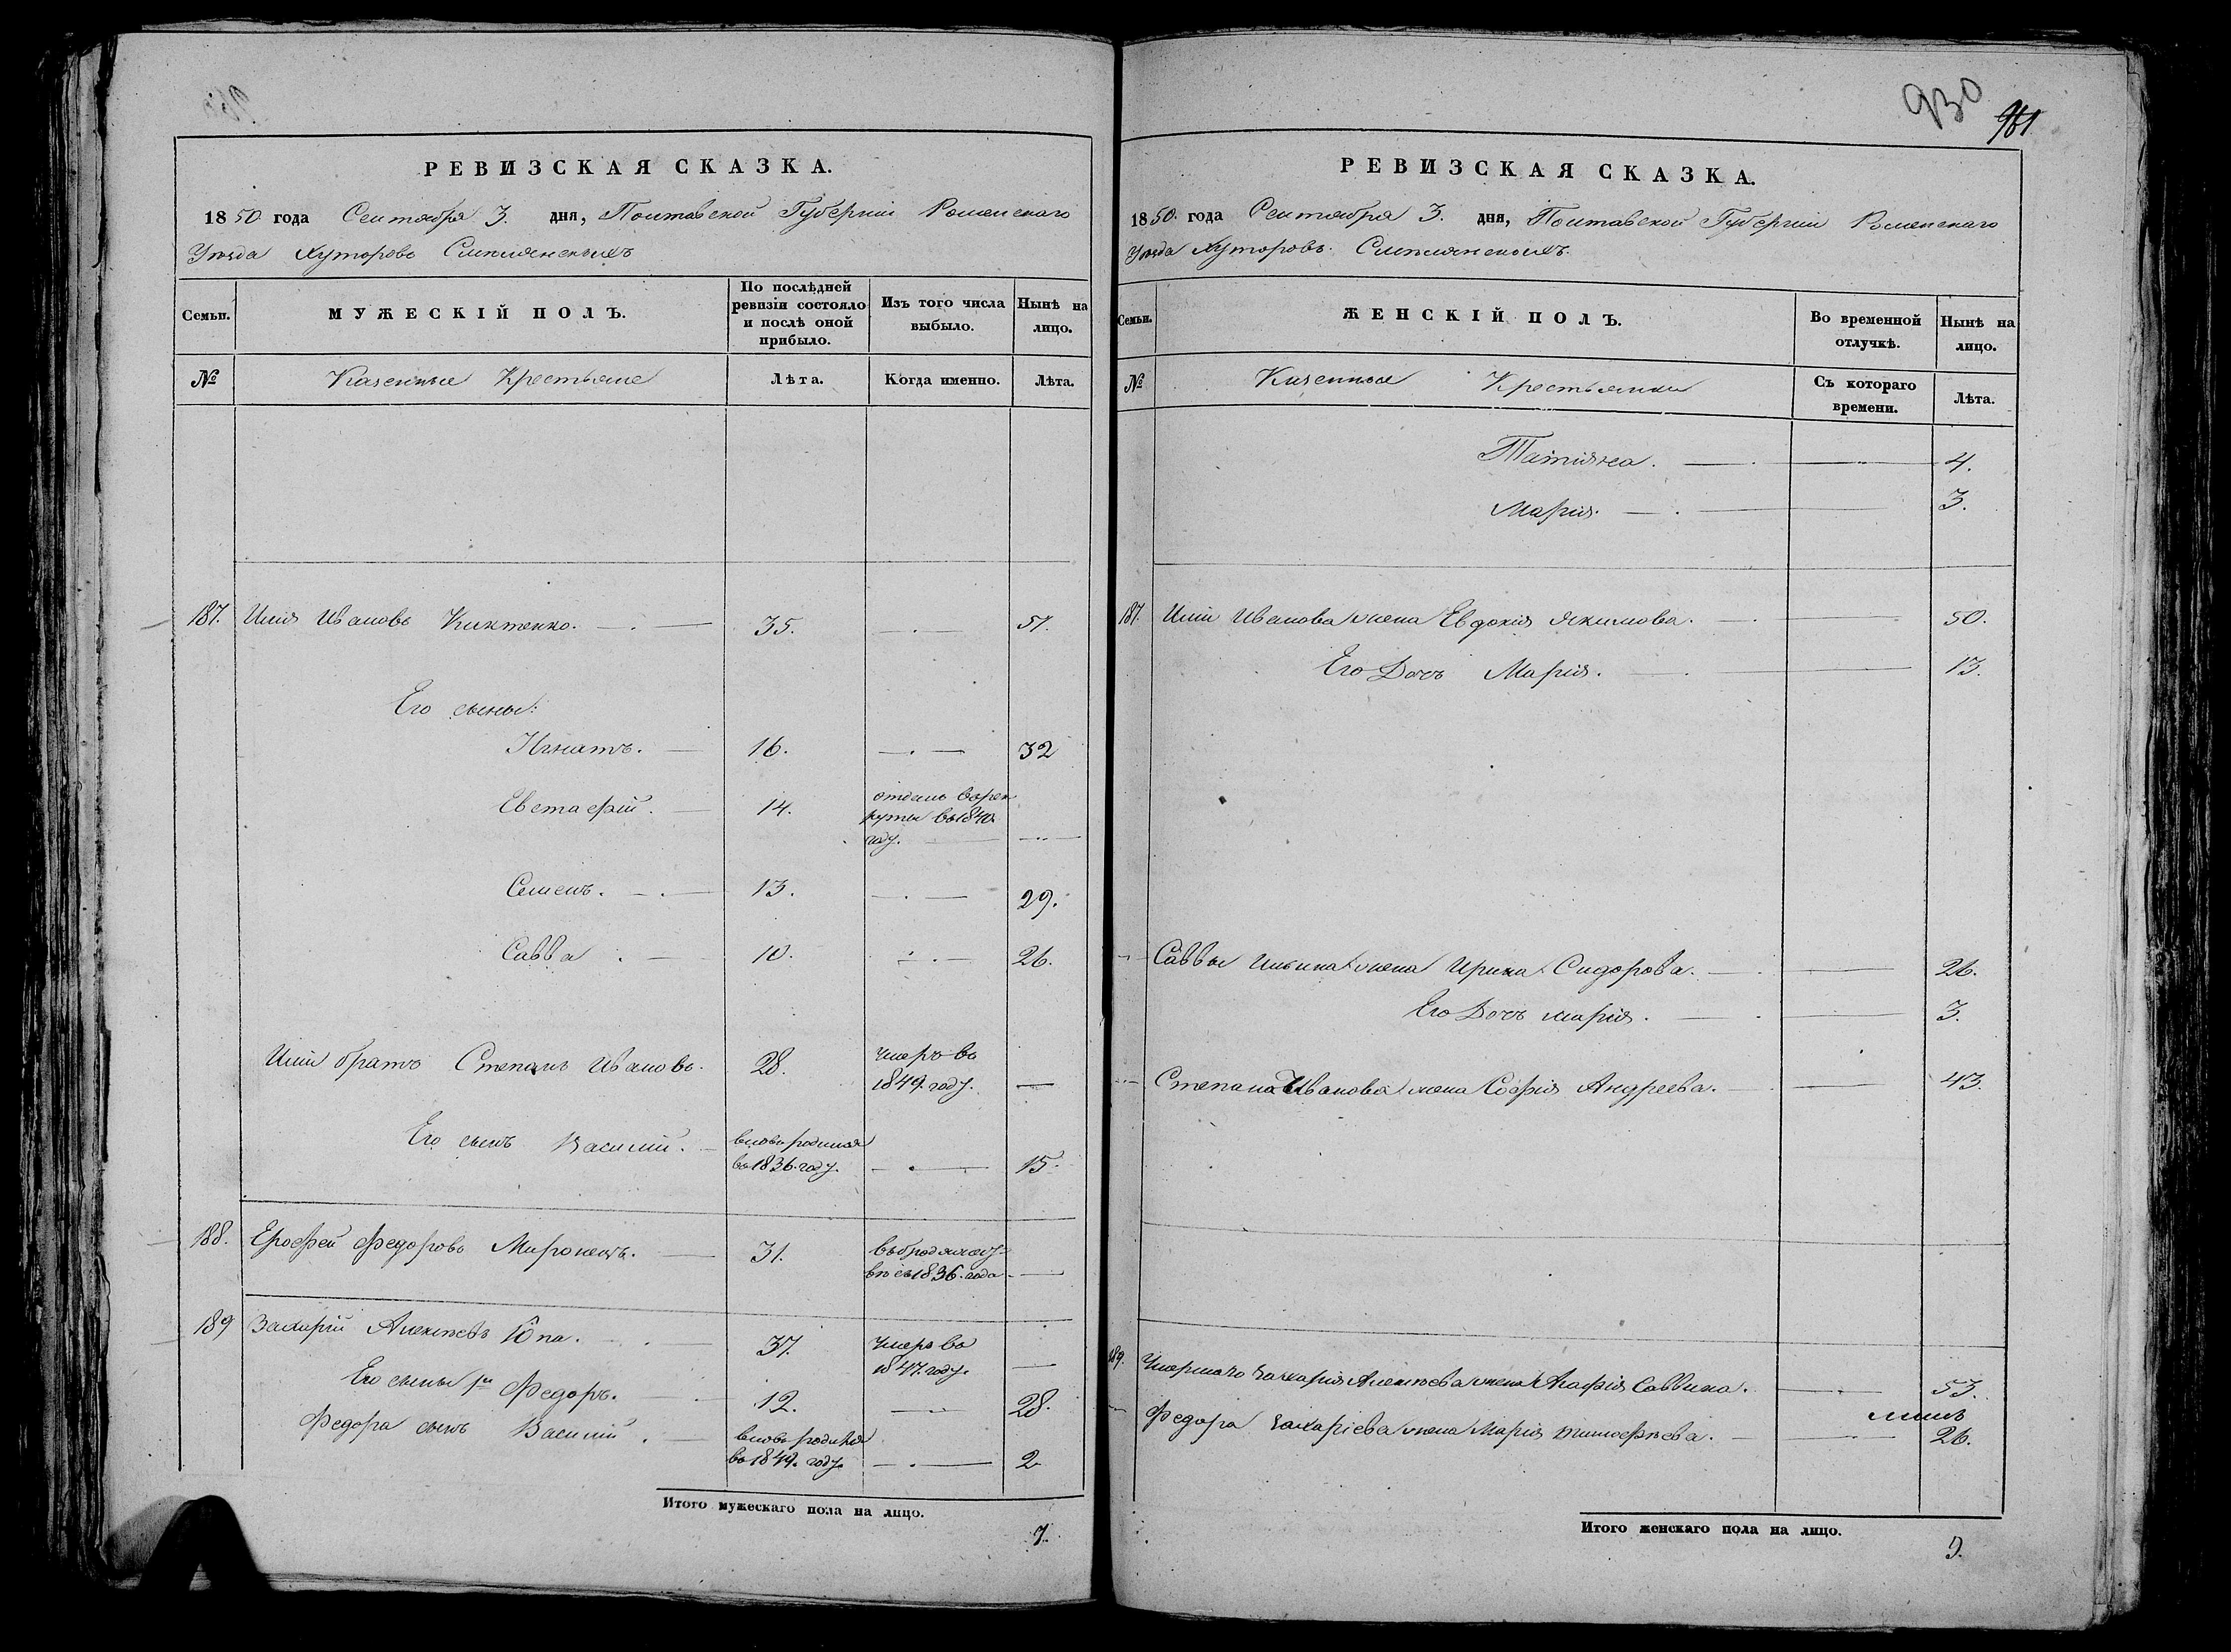 930
961
РЕВИЗСКАЯ СКАЗКА.
1850 года Сентября 3. дня, Полтавской Губерніи Роменскаго
Уѣзда Хуторовъ
Семьи.
МУЖЕСКІЙ ПОЛЪ.
По послѣдней ревизіи состояло и послѣ оной прибыло.
Изъ того числа выбыло.
Нынѣ на лицо.
№
Казенные Крестьяне
Лѣта.
Когда именно.
Лѣта.
187. Илія Ивановъ Киктенко. 35. 51.
Его сыны:
Игнатъ. 16. 32
Евстафій. 14. отданъ въ рек
руты въ 1840
году.
Семенъ. 13. 29.
Савва 10. 26.
Иліи братъ Степанъ Ивановъ. 28. умеръ въ
1849. году.
Его сынъ Василій. вновь родился
въ 1836. году. 15.
188. Ерофей Федоровъ Миронецъ. 31. въ бродяжест
вѣ съ 1836. года
189 Захарій Алексѣевъ Юпа. 37. умеръ въ
1847. году.
Его сыны Федоръ. 12. 28.
Федора сынъ Василій. вновь родился
въ 1849. году. 2
Итого мужескаго пола на лицо.
7.
РЕВИЗСКАЯ СКАЗКА.
1850. года Сентября 3. дня, Полтавской Губерніи Роменскаго
Уѣзда Хуторовъ
Семьи.
ЖЕНСКІЙ ПОЛЪ.
Во временной отлучкѣ.
Нынѣ на лицо.
№
Казенныя Крестьянки
Съ котораго времени.
Лѣта.
Татіяна. 4.
Марія. 3.
187. Иліи Иванова жена Евдокія Якимова. 50.
Его Дочь Марія. 13.
Саввы Ильина жена Ирина Сидорова. 26.
Его Дочь Марія. 3.
Степана Иванова жена Софія Андреева. 43.
189. Умершаго Захарія Алексѣева жена Агафія Саввина. 53.
Федора Захаріева жена Марія Тимофѣева. 26.
Итого женскаго пола на лицо.
9.